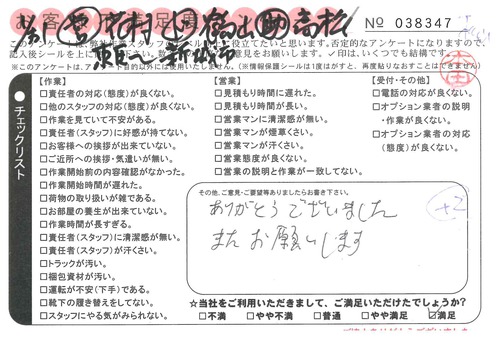 花村
高松
No 038347
このアンケートは弊社
記入後シールを上に
いつくでも結構です。
※このアンケートは、アンケート目的以外には使用いたしません。(情報保護シールは1度はがすと、再度貼りなおすことはできません)
チェックリスト
【作業】
□責任者の対応(態度)が良くない。
□他のスタッフの対応(態度)が良くない。
□作業を見ていて不安がある。
□責任者(スタッフ)に好感が持てない。
□お客様への挨拶が出来ていない。
□ご近所への挨拶・気遣いが無い。
□作業開始前の内容確認がなかった。
□作業開始時間が遅れた。
□荷物の取り扱いが雑である。
□お部屋の養生が出来ていない。
□作業時間が長すぎる。
□責任者(スタッフ)に清潔感が無い。
□責任者(スタッフ)が汗くさい。
□トラックが汚い。
□梱包資材が汚い。
□運転が不安(下手)である。
□靴下の履き替えをしてない。
□スタッフにやる気がみられない。
【営業】
□見積もり時間に遅れた。
□見積もり時間が長い。
□営業マンに清潔感が無い。
□営業マンが煙草くさい。
□営業マンが汗くさい。
□営業態度が良くない。
□営業の説明と作業が一致してない。
【受付・その他】
□電話の対応が良くない。
□オプション業者の説明
・作業が良くない。
□オプション業者の対応
(態度)が良くない。
その他、ご意見・ご要望等ありましたらお書き下さい。
ありがとうございました
またお願いします
+2
☆当社をご利用いただきまして、ご満足いただけたでしょうか?
□不満 □やや不満 □普通 □やや満足 ☑満足